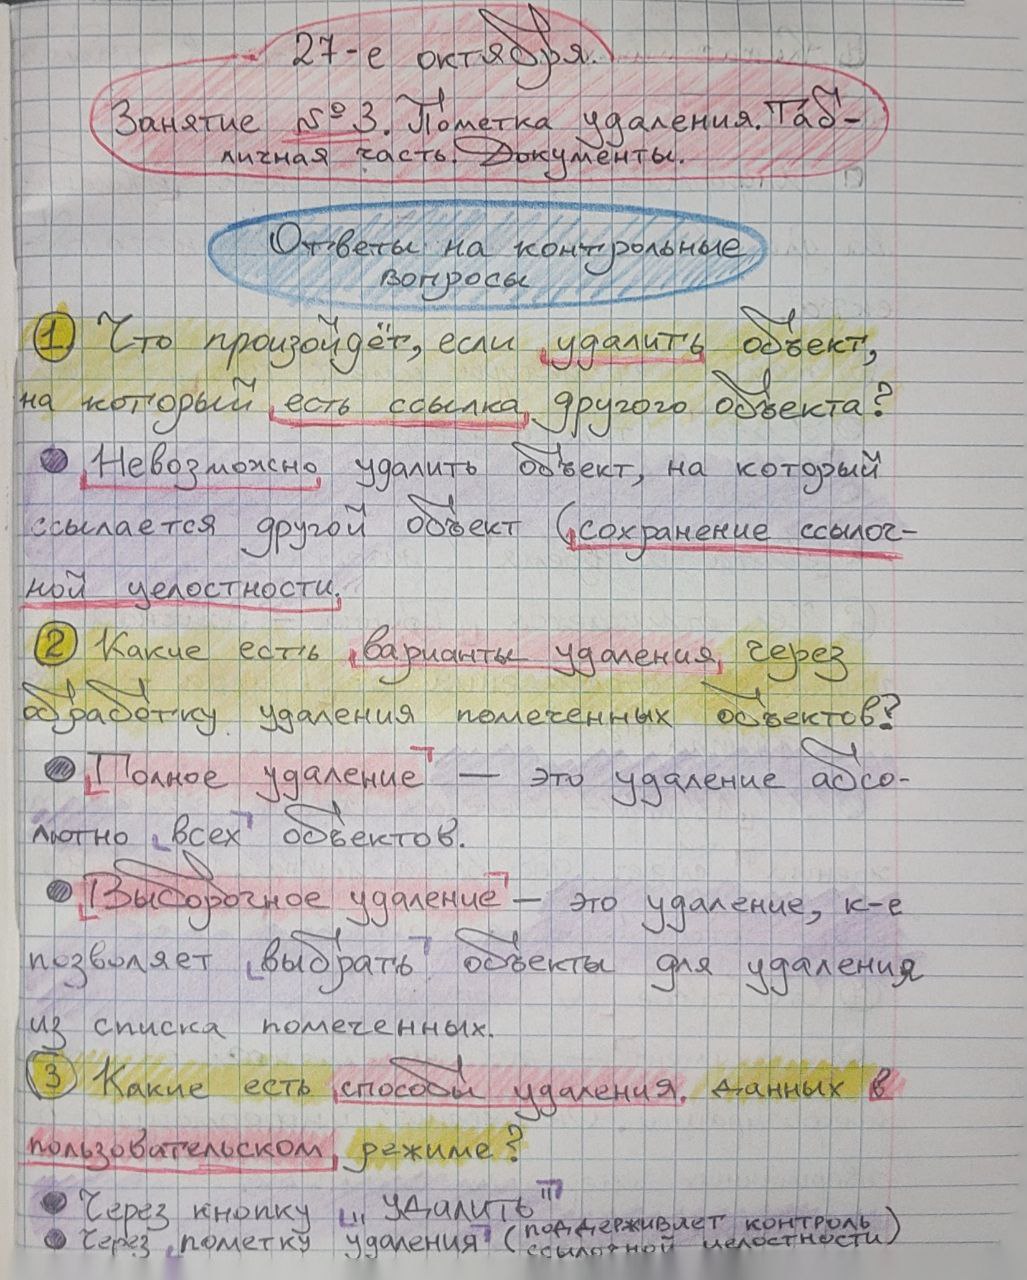 27-е октября.
Занятие №3. Пометка удаления. Таб-
личная часть. Документы.
Ответы на контрольные
вопросы
1 Что произойдёт, если удалить объект,
на который есть ссылка другого объекта?
Невозможно удалить объект, на который
ссылается другой объект (сохранение ссылоч-
ной целостности.
2 Какие есть варианты удаления через
обработку удаления помеченных объектов?
Полное удаление — это удаление абсо-
лютно всех объектов.
Выборочное удаление — это удаление, к-е
позволяет выбрать объекты для удаления
из списка помеченных.
3 Какие есть способы удаления данных в
пользовательском режиме?
Через кнопку „Удалить"
Через пометку удаления (поддерживает контроль
ссылочной целостности)